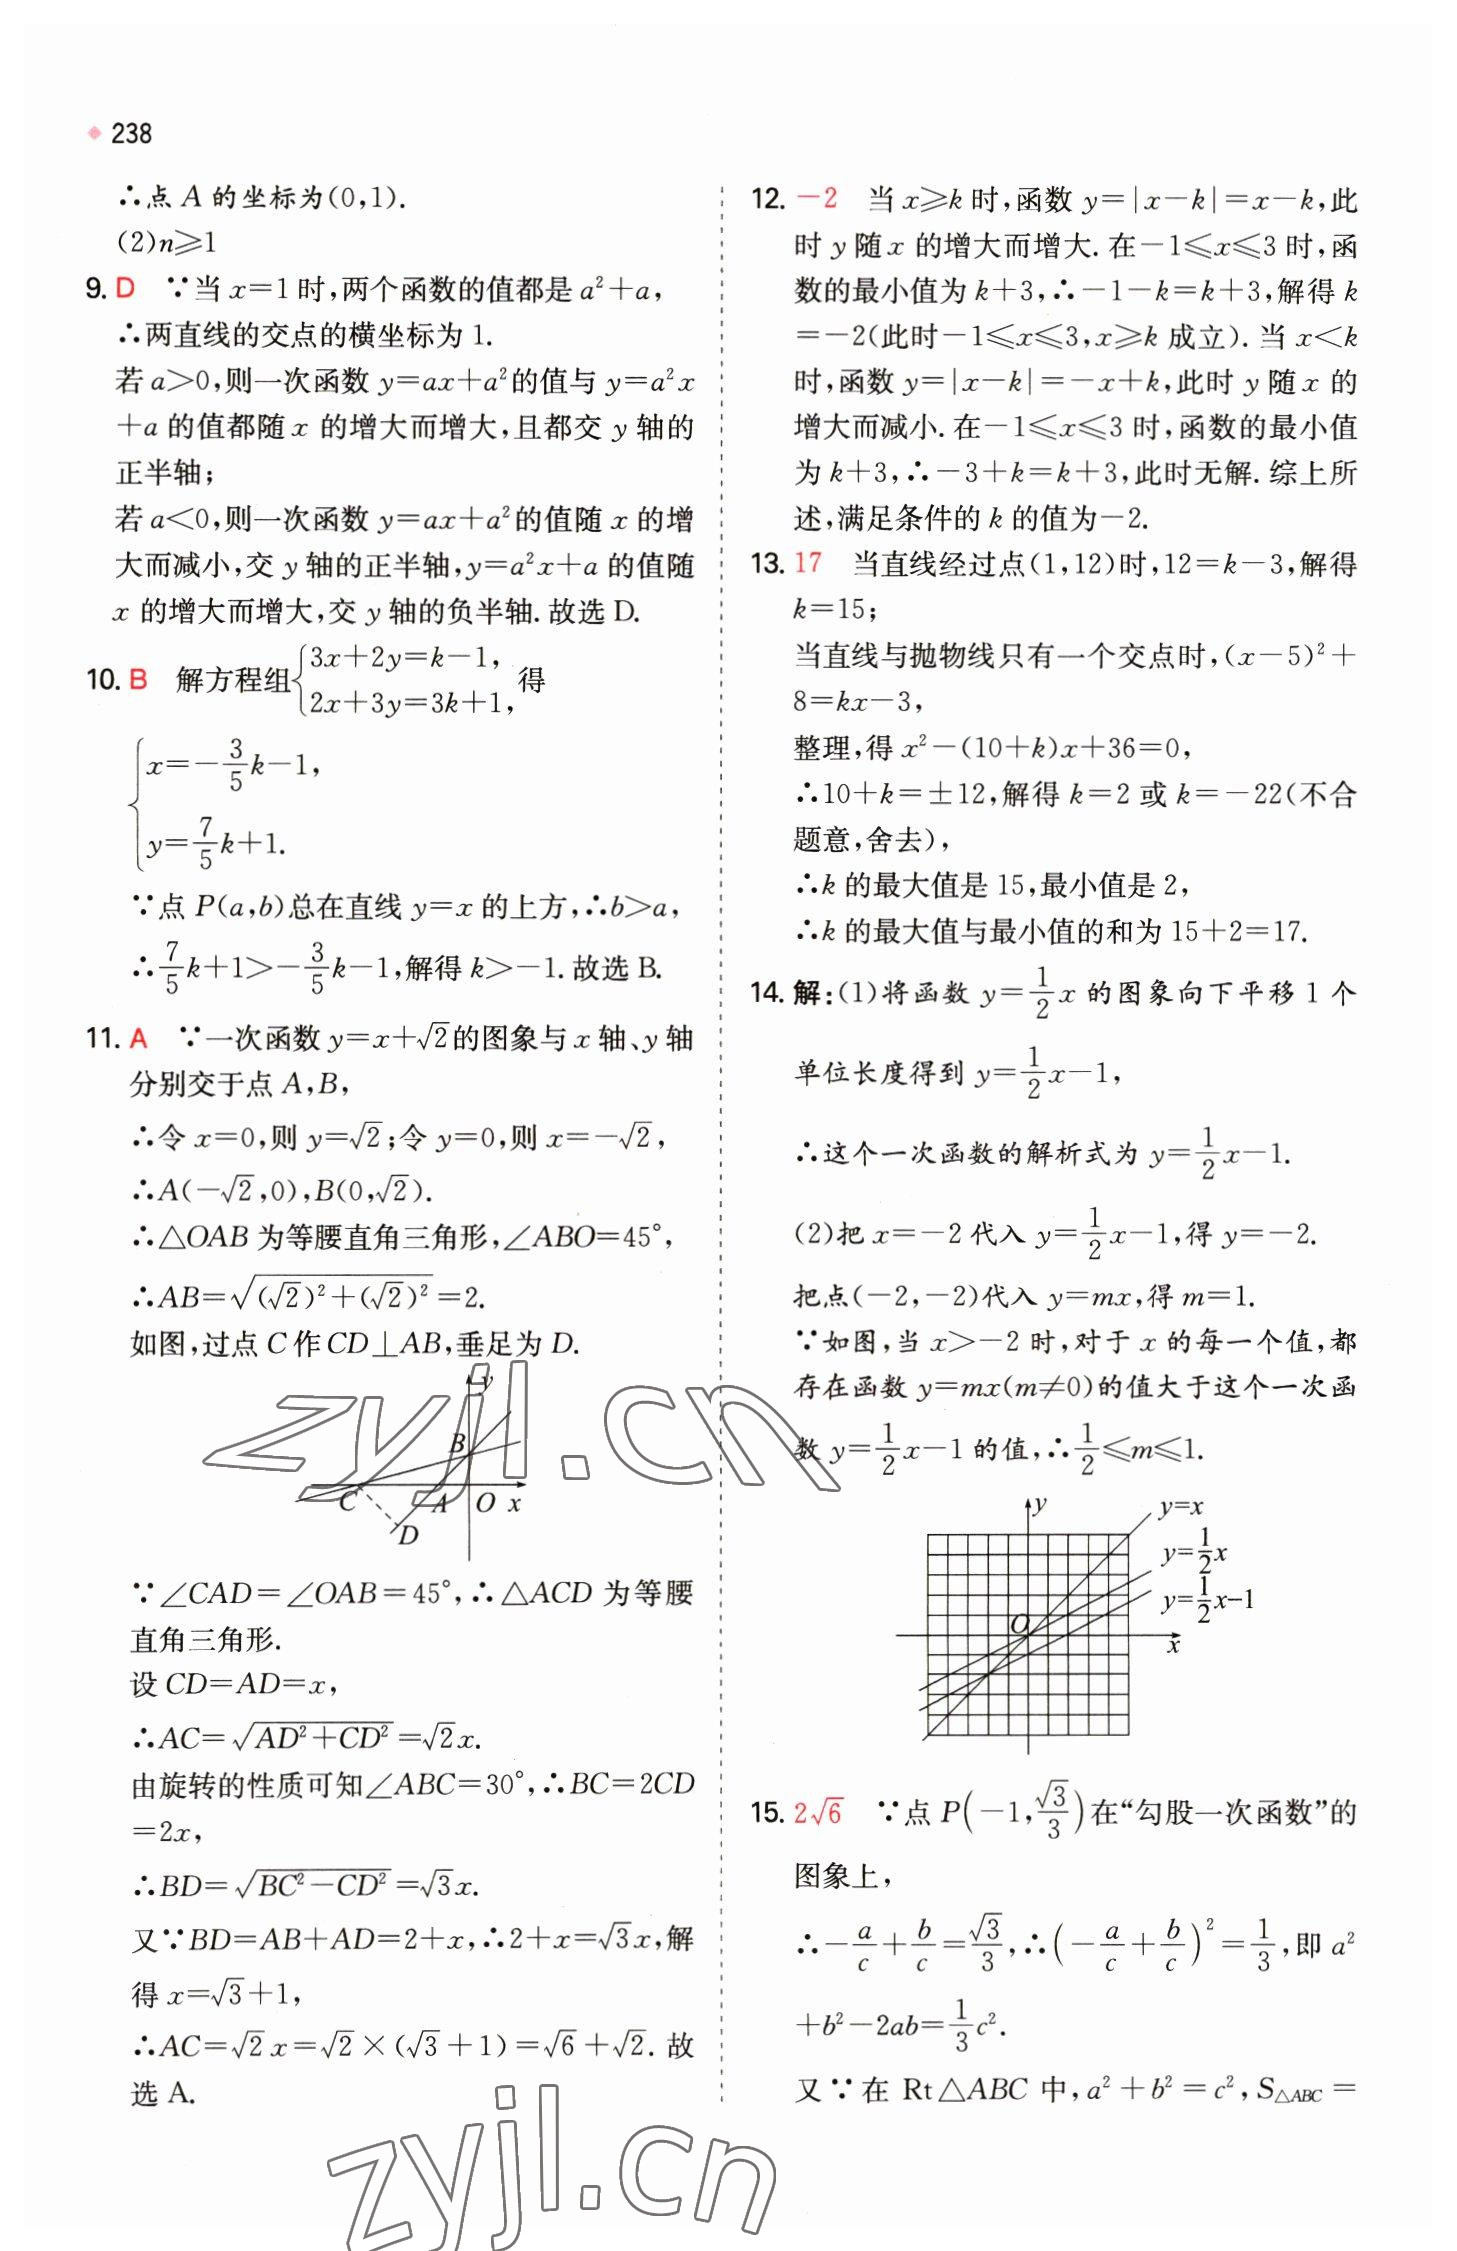 238
∴点 A 的坐标为(0,1).
(2)n≥1
9. D ∵当 x=1时,两个函数的值都是 a²+a,
∴两直线的交点的横坐标为 1.
若 a>0,则一次函数 y=ax+a²的值与 y=a²x
+a 的值都随 x 的增大而增大,且都交 y 轴的
正半轴;
若 a<0,则一次函数 y=ax+a²的值随 x 的增
大而减小,交 y 轴的正半轴,y=a²x+a 的值随
x 的增大而增大,交 y 轴的负半轴.故选 D.
10. B 解方程组{3x+2y=k-1, 2x+3y=3k+1,得
{x=-3/5k-1,
y=7/5k+1.
∵点 P(a,b)总在直线 y=x 的上方,∴b>a,
∴7/5k+1>-3/5k-1,解得 k>-1.故选 B.
11. A ∵一次函数 y=x+√2的图象与 x 轴、y 轴
分别交于点 A,B,
∴令 x=0,则 y=√2;令 y=0,则 x=-√2,
∴A(-√2,0),B(0,√2).
∴△OAB 为等腰直角三角形,∠ABO=45°,
∴AB=√((√2)²+(√2)²)=2.
如图,过点 C 作 CD⊥AB,垂足为 D.
y
B
C A O x
D
∵∠CAD=∠OAB=45°,∴△ACD 为等腰
直角三角形.
设 CD=AD=x,
∴AC=√(AD²+CD²)=√2x.
由旋转的性质可知∠ABC=30°,∴BC=2CD
=2x,
∴BD=√(BC²-CD²)=√3x.
又∵BD=AB+AD=2+x,∴2+x=√3x,解
得 x=√3+1,
∴AC=√2x=√2×(√3+1)=√6+√2.故
选 A.
12. -2 当 x≥k 时,函数 y=|x-k|=x-k,此
时 y 随 x 的增大而增大.在-1≤x≤3 时,函
数的最小值为 k+3,∴-1-k=k+3,解得 k
=-2(此时-1≤x≤3,x≥k 成立).当 x<k
时,函数 y=|x-k|=-x+k,此时 y 随 x 的
增大而减小.在-1≤x≤3 时,函数的最小值
为 k+3,∴-3+k=k+3,此时无解.综上所
述,满足条件的 k 的值为-2.
13. 17 当直线经过点(1,12)时,12=k-3,解得
k=15;
当直线与抛物线只有一个交点时,(x-5)²+
8=kx-3,
整理,得 x²-(10+k)x+36=0,
∴10+k=±12,解得 k=2 或 k=-22(不合
题意,舍去),
∴k 的最大值是 15,最小值是 2,
∴k 的最大值与最小值的和为 15+2=17.
14. 解:(1)将函数 y=1/2x 的图象向下平移 1 个
单位长度得到 y=1/2x-1,
∴这个一次函数的解析式为 y=1/2x-1.
(2)把 x=-2 代入 y=1/2x-1,得 y=-2.
把点(-2,-2)代入 y=mx,得 m=1.
∵如图,当 x>-2 时,对于 x 的每一个值,都
存在函数 y=mx(m≠0)的值大于这个一次函
数 y=1/2x-1 的值,∴1/2≤m≤1.
y y=x
y=1/2x
y=1/2x-1
O
x
15. 2√6 ∵点 P(-1,√3/3)在“勾股一次函数”的
图象上,
∴-a/c+b/c=√3/3,∴(-a/c+b/c)²=1/3,即 a²
+b²-2ab=1/3c².
又∵在 Rt△ABC 中,a²+b²=c²,S△ABC=
zyjl.cn
zyjl.cn